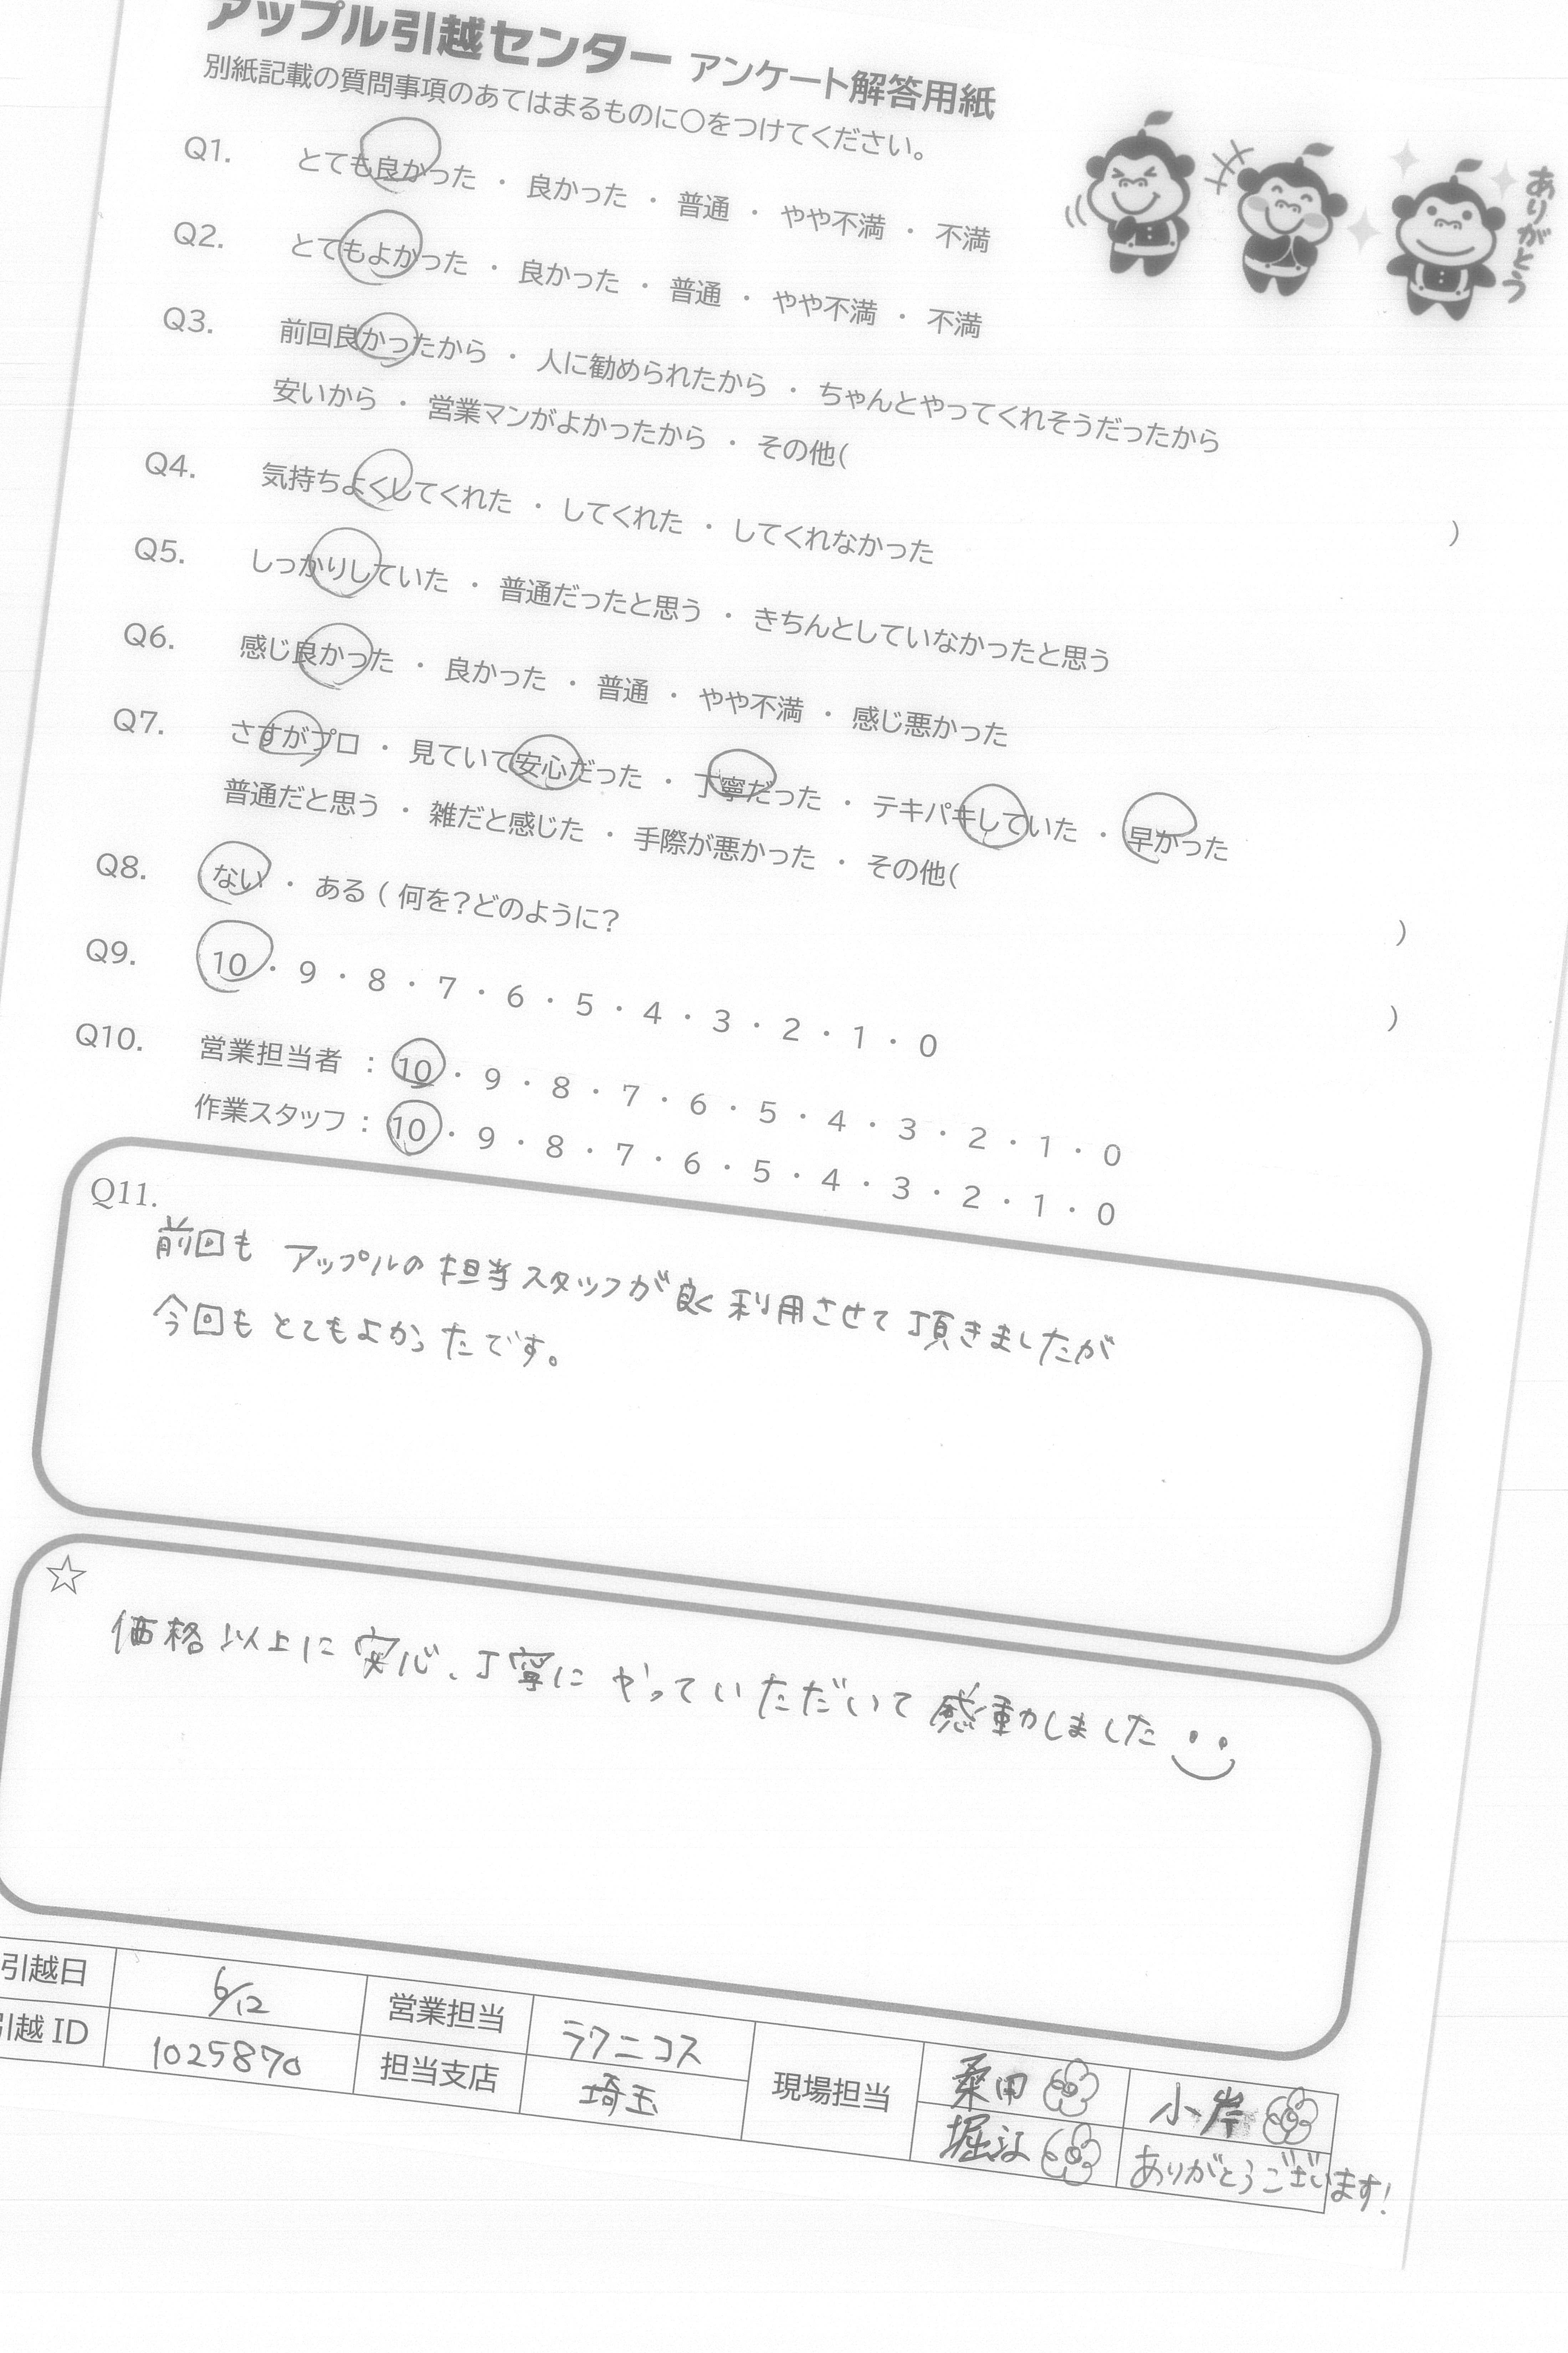 アップル引越センター アンケート解答用紙
別紙記載の質問事項のあてはまるものに〇をつけてください。
ありがとう
Q1. とても良かった ・ 良かった ・ 普通 ・ やや不満 ・ 不満
Q2. とてもよかった ・ 良かった ・ 普通 ・ やや不満 ・ 不満
Q3. 前回良かったから ・ 人に勧められたから ・ ちゃんとやってくれそうだったから
安いから ・ 営業マンがよかったから ・ その他( )
Q4. 気持ちよくしてくれた ・ してくれた ・ してくれなかった
Q5. しっかりしていた ・ 普通だったと思う ・ きちんとしていなかったと思う
Q6. 感じ良かった ・ 良かった ・ 普通 ・ やや不満 ・ 感じ悪かった
Q7. さすがプロ ・ 見ていて安心だった ・ 丁寧だった ・ テキパキしていた ・ 早かった
普通だと思う ・ 雑だと感じた ・ 手際が悪かった ・ その他( )
Q8. ない ・ ある ( 何を?どのように? )
Q9. 10 ・ 9 ・ 8 ・ 7 ・ 6 ・ 5 ・ 4 ・ 3 ・ 2 ・ 1 ・ 0
Q10. 営業担当者 : 10 ・ 9 ・ 8 ・ 7 ・ 6 ・ 5 ・ 4 ・ 3 ・ 2 ・ 1 ・ 0
作業スタッフ : 10 ・ 9 ・ 8 ・ 7 ・ 6 ・ 5 ・ 4 ・ 3 ・ 2 ・ 1 ・ 0
Q11.
前回も アップルの担当スタッフが良く利用させて頂きましたが
今回もとてもよかったです。
☆
価格以上に安心、丁寧にやっていただいて感動しました
引越日 6/12 営業担当 ラクニコス 現場担当 桑田 小岸
引越 ID 1025870 担当支店 埼玉 堀江 ありがとうございます!